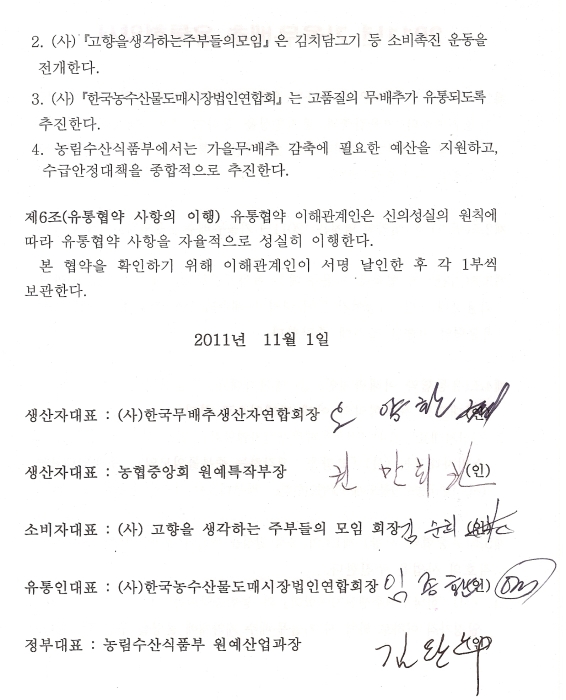 2. (사)『고향을생각하는주부들의모임』은 김치담그기 등 소비촉진 운동을
전개한다.
3. (사)『한국농수산물도매시장법인연합회』는 고품질의 무·배추가 유통되도록
추진한다.
4. 농림수산식품부에서는 가을무·배추 감축에 필요한 예산을 지원하고,
수급안정대책을 종합적으로 추진한다.
제6조(유통협약 사항의 이행) 유통협약 이해관계인은 신의성실의 원칙에
따라 유통협약 사항을 자율적으로 성실히 이행한다.
본 협약을 확인하기 위해 이해관계인이 서명 날인한 후 각 1부씩
보관한다.
2011년 11월 1일
생산자대표 : (사)한국무배추생산자연합회장
생산자대표 : 농협중앙회 원예특작부장 권 만 회 (인)
소비자대표 : (사) 고향을 생각하는 주부들의 모임 회장 김 순리
유통인대표 : (사)한국농수산물도매시장법인연합회장 임 (인)
정부대표 : 농림수산식품부 원예산업과장 김